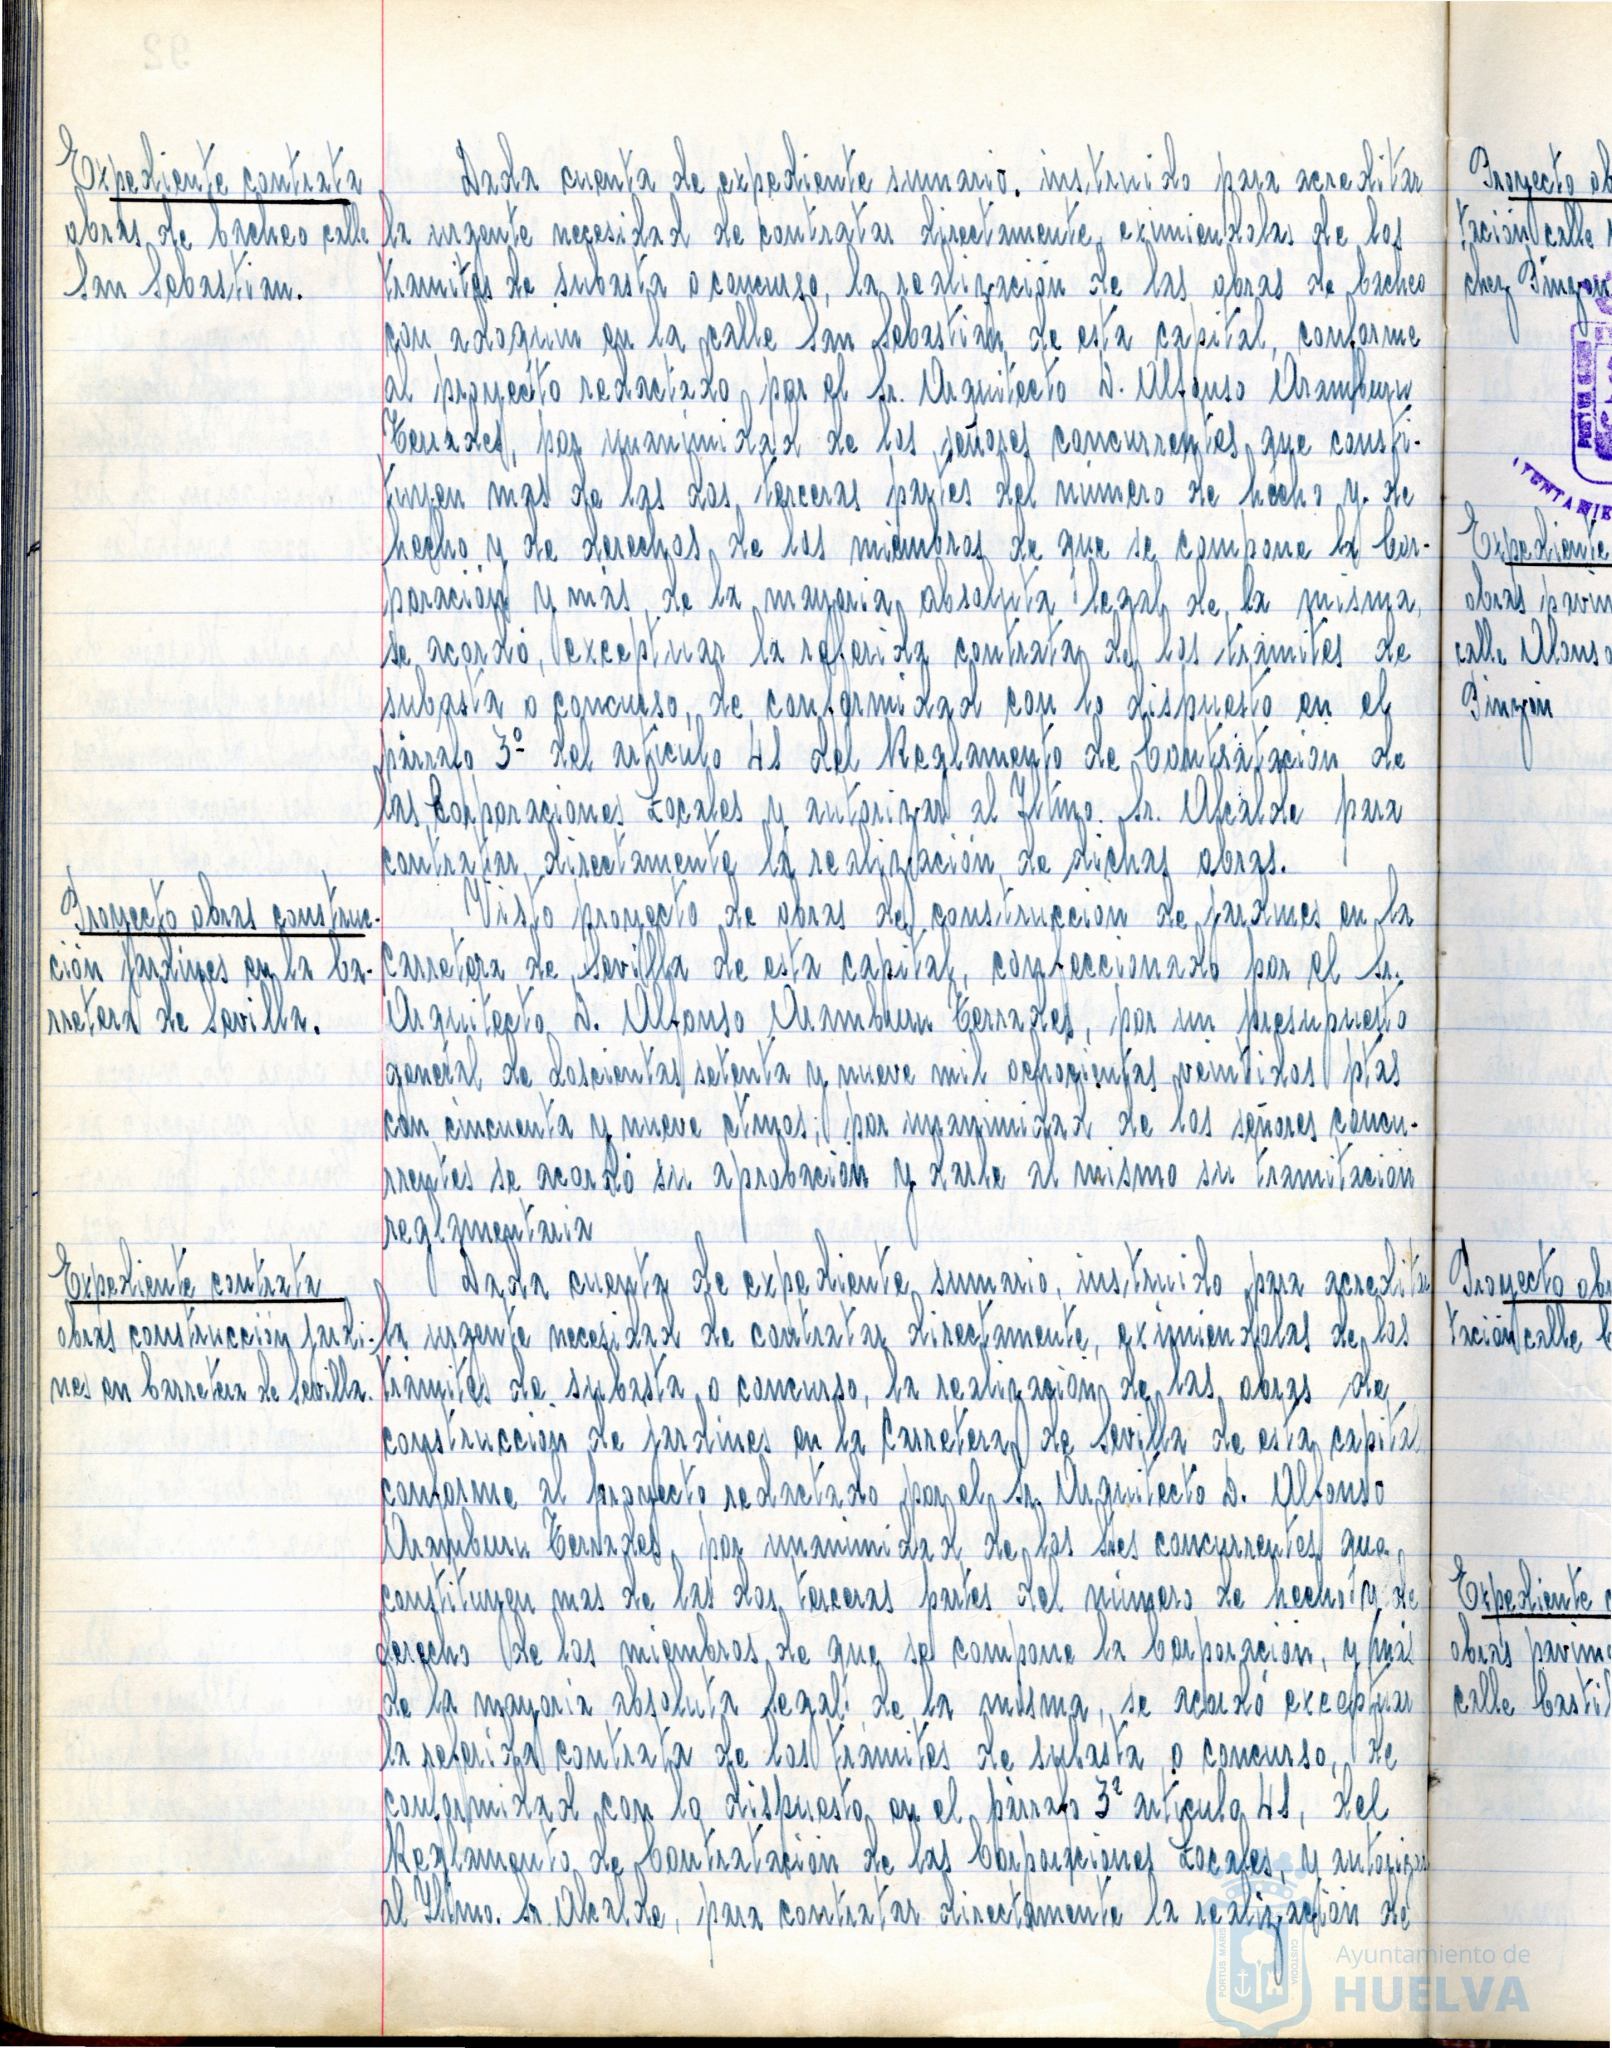 Expediente contrata
obras de bacheo calle
San Sebastian.
Dada cuenta de expediente sumario, instruido para acreditar
la urgente necesidad de contratar directamente, eximiendolas de los
tramites de subasta o concurso, la realización de las obras de bacheo
con adoquin en la calle San Sebastián de esta capital, conforme
al proyecto redactado por el Sr. Arquitecto D. Alfonso Aramburu
Terrades, por unanimidad de los señores concurrentes que consti-
tuyen mas de las dos terceras partes del número de hecho y de
hecho y de derechos de los miembros de que se compone la Cor-
poración y más de la mayoria absoluta legal de la misma,
se acordó, exceptuar la referida contrata de los trámites de
subasta o concurso, de conformidad con lo dispuesto en el
párrafo 3º del artículo 41 del Reglamento de Contratación de
las Corporaciones Locales y autorizar al Iltmo. Sr. Alcalde para
contratar directamente la realización de dichas obras.
Proyecto obras construc-
ción jardines en la Ca-
rretera de Sevilla.
Visto proyecto de obras de construccion de jardines en la
Carretera de Sevilla de esta capital, confeccionado por el Sr.
Arquitecto D. Alfonso Aramburu Terrades, por un presupuesto
general de doscientas setenta y nueve mil ochocientas veintidos ptas
con cincuenta y nueve ctmos; por unanimidad de los señores concu-
rrentes se acordó su aprobación y darle al mismo su tramitación
reglamentaria
Expediente contrata
obras construcción jardi-
nes en Carretera de Sevilla.
Dada cuenta de expediente sumario, instruido para acreditar
la urgente necesidad de contratar directamente, eximiendolas de los
trámites de subasta o concurso, la realización de las obras de
construcción de jardines en la Carretera de Sevilla de esta capital
conforme al proyecto redactado por el Sr. Arquitecto D. Alfonso
Aramburu Terrades, por unanimidad de los Sres concurrentes que
constituyen mas de las dos terceras partes del número de hecho y de
derecho de los miembros de que se compone la Corporación, y más
de la mayoria absoluta legal de la misma, se acordó exceptuar
la referida contrata de los trámites de subasta o concurso, de
conformidad con lo dispuesto en el párrafo 3º artículo 41, del
Reglamento de Contratación de las Corporaciones Locales, y autorizar
al Iltmo. Sr. Alcalde, para contratar directamente la realización de
Proyecto ob
tación calle
chez Pinzon
AYUNTAMIE
Expediente
obras pavim
calle Alonso
Pinzón
Proyecto obr
tación calle C
Expediente c
obras pavime
calle Castil
PORTUS MARIS
CUSTODIA
Ayuntamiento de
HUELVA